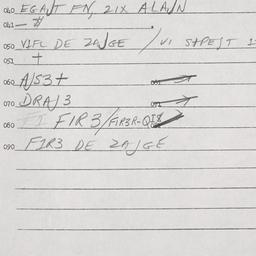 040 EGAJT FN, 2IX ALAJN
041 - #
050 VIFL DE ZAJGE / VI STPEJT
051 +
060 AJS3+ 061
070 DRAJ3 071
080 FIR3/FIR3R-QI8
090 FIR3 DE ZAJGE